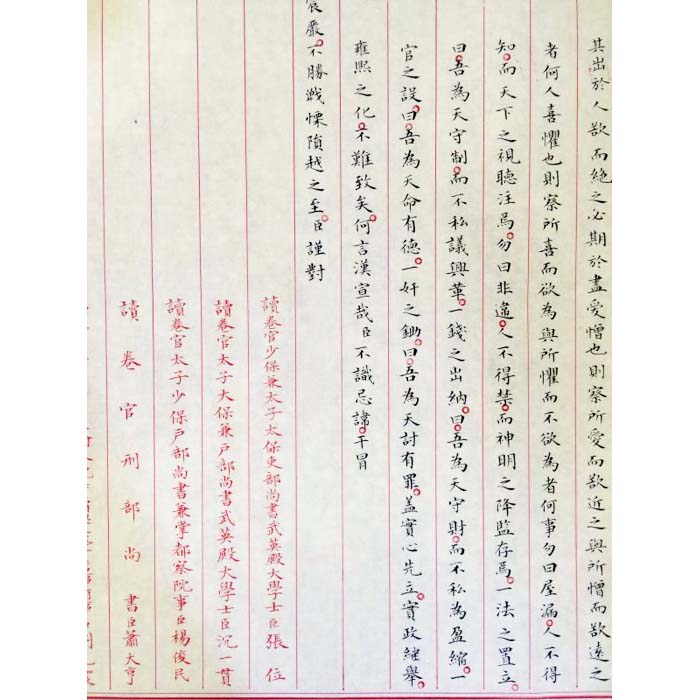 其出於人欲而絕之必期於盡愛憎也則察所愛而欲近之與所憎而欲遠之
者何人喜懼也則察所喜而欲為與所懼而不欲為者何事勿曰屋漏人不得
知而天下之視聽注焉勿曰非違人不得禁而神明之降監存焉一法之置立
曰吾為天守制而不私議興革一錢之出納曰吾為天守財而不私為盈縮一
官之設曰吾為天命有德一奸之鋤曰吾為天討有罪盖實心先立實政繼舉
雍熙之化不難致矣何言漢宣哉臣不識忌諱干冒
宸嚴不勝戰慄隕越之至臣謹對
讀卷官少保兼太子太保吏部尚書武英殿大學士臣張位
讀卷官太子大保兼戶部尚書武英殿大學士臣沉一貫
讀卷官太子少保戶部尚書兼掌都察院事臣楊俊民
讀卷官刑部尚書臣蕭大亨